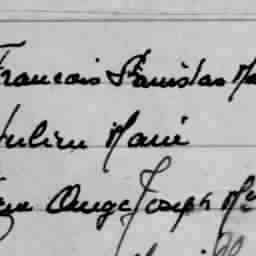 Francois Stanislas
Julien Marie
Ange Joseph